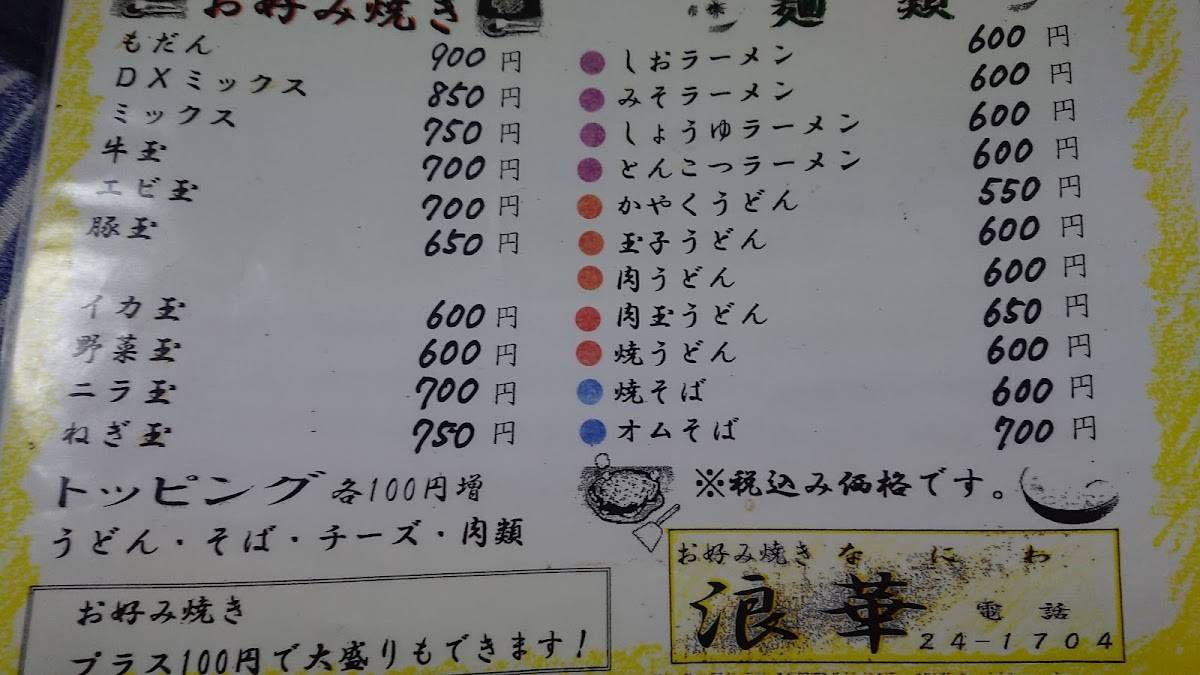 お好み焼き
もだん 900円
DXミックス 850円
ミックス 750円
牛玉 700円
エビ玉 700円
豚玉 650円
イカ玉 600円
野菜玉 600円
ニラ玉 700円
ねぎ玉 750円
トッピング 各100円増
うどん・そば・チーズ・肉類
お好み焼き
プラス100円で大盛りもできます!
麺類
しおラーメン 600円
みそラーメン 600円
しょうゆラーメン 600円
とんこつラーメン 600円
かやくうどん 550円
玉子うどん 600円
肉うどん 600円
肉玉うどん 650円
焼うどん 600円
焼そば 600円
オムそば 700円
※税込み価格です。
お好み焼き なにわ
浪華 電話
24-1704